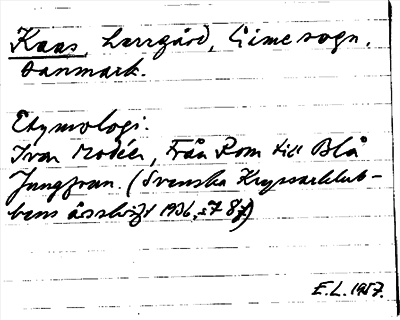 Kaas, herrgård, Lime sogn,
Danmark.
Etymologi.
Ivar Modéer, Från Rom till Blå
Jungfrun. (Svenska Kryssarklub-
bens årsskrift 1936, s. 78 f)
E.L. 1957.